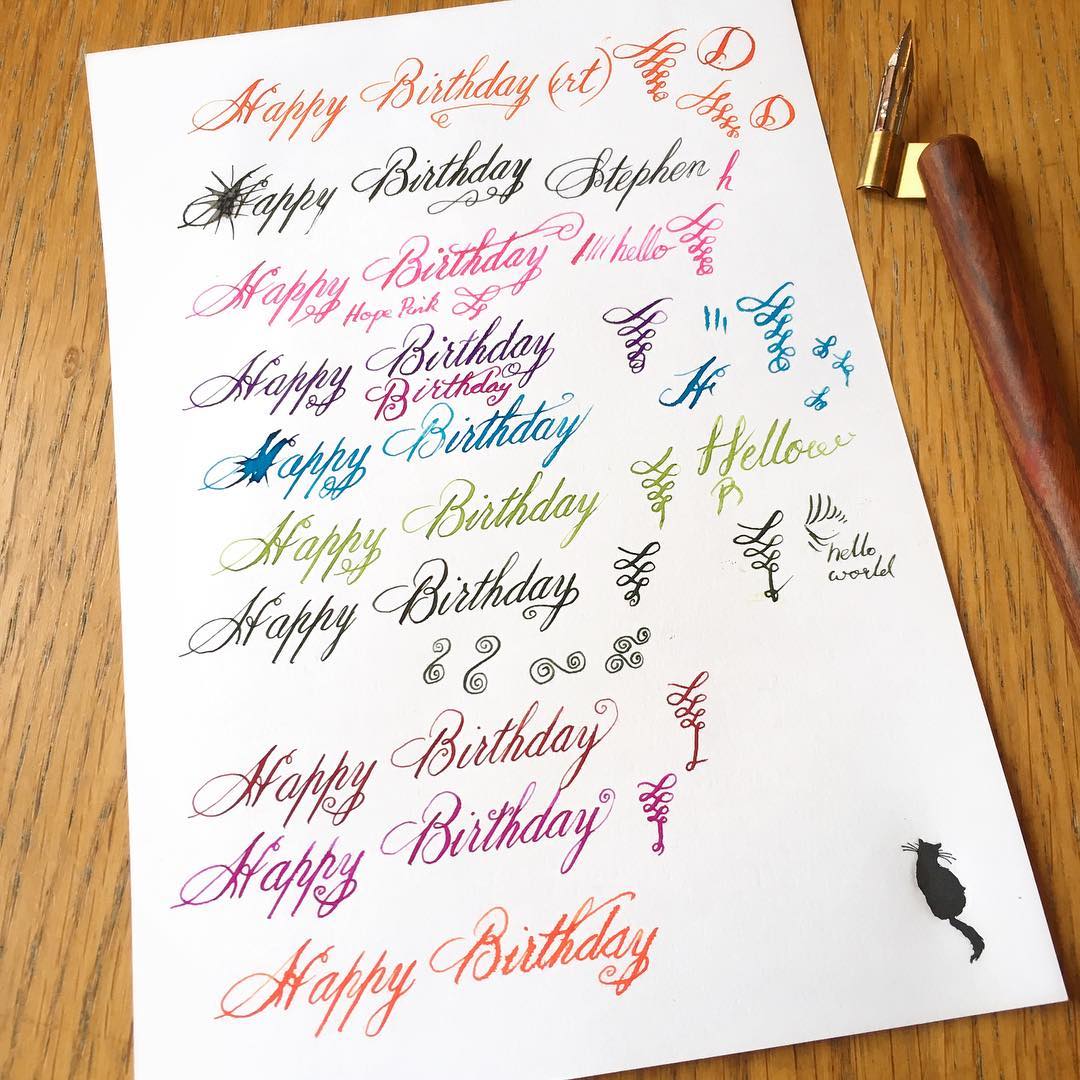 Happy Birthday (rt) D
D
Happy Birthday Stephen h
Happy Birthday hello
Hope Pink
Happy Birthday
Birthday
H
Happy Birthday
Hello
B
Happy Birthday
hello
world
Happy Birthday
Happy Birthday
Happy Birthday
Happy Birthday